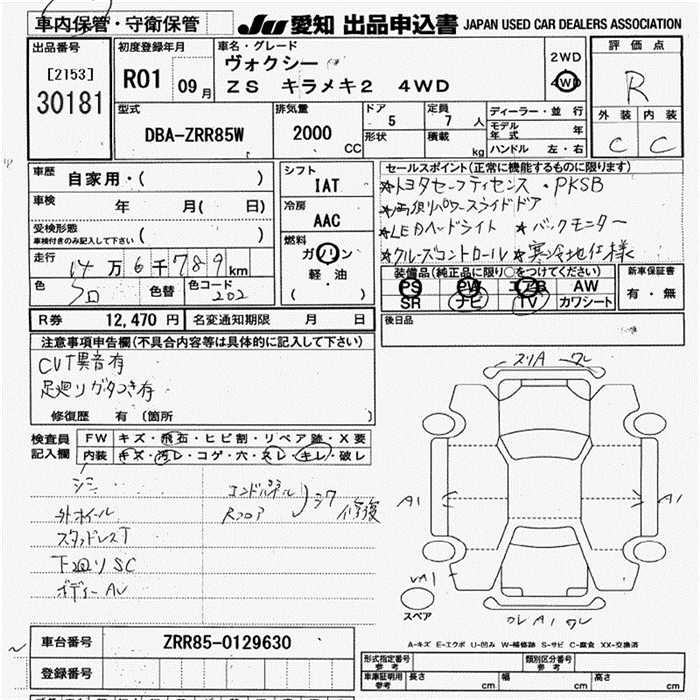 車内保管・守衛保管
JU 愛知 出品申込書 JAPAN USED CAR DEALERS ASSOCIATION
出品番号 初度登録年月 車名・グレード 評価点
[2153] ヴォクシー 2WD
30181 R01 09月 ZS キラメキ2 4WD 4WD R
型式 排気量 ドア 定員 ディーラー・並行 外装 内装
DBA-ZRR85W 2000 CC 5 7人 モデル年式 年 C C
形状 積載 kg ハンドル 左・右
車歴 自家用・( ) シフト IAT セールスポイント(正常に機能するものに限ります)
車検 年 月( 日) 冷房 AAC ★トヨタセーフティセンス ・PKSB
受検形態 ★両側パワースライドドア
車検付きのみ記入して下さい ( ) 燃料 ガソリン ★LEDヘッドライト ★バックモニター
走行 14万6千789km 軽・油 ★クルーズコントロール ★寒冷地仕様
色 色替 色コード 202 ( ) 装備品(純正品に限り○をつけてください) 新車保証書
PS PW エアB AW 有・無
SR ナビ TV カワシート
R券 12,470 円 名変通知期限 月 日 後日品
注意事項申告欄(不具合内容等は具体的に記入して下さい)
CVT異音有
足廻りガタつき有
修復歴 有 (箇所
検査員記入欄 FW キズ・飛石・ヒビ割・リペア跡・X要
内装 キズ・汚レ・コゲ・穴・スレ・キレ・破レ
エンドパネル
外ホイール Rフロア 修復
スタッドレスT
下廻りSC
ボディーAU
A1 A1
A1
スペア
A1
A-キズ E-エクボ U-凹み W-補修跡 S-サビ C-腐食 XX-交換済
車台番号 ZRR85-0129630
登録番号
形式指定番号 参考 類別区分番号 参考
車庫証明用 参考 長さ cm 幅 cm 高さ cm